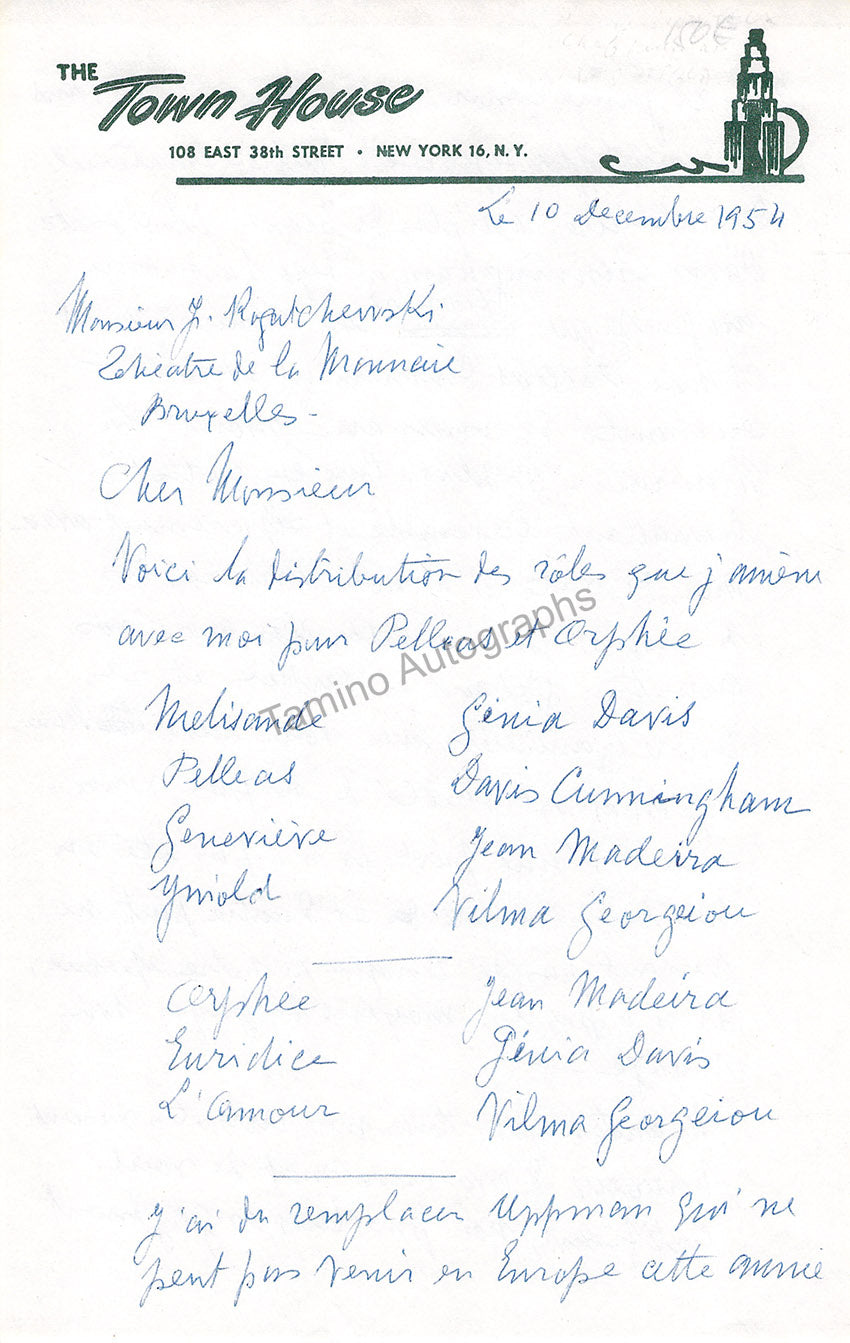 THE
Town House
108 EAST 38th STREET • NEW YORK 16, N. Y.
150€
Le 10 Decembre 1954
Monsieur J. Rogatchewski
Théatre de la Monnaie
Bruxelles -
Cher Monsieur
Voici la distribution des rôles que j'amène
avec moi pour Pelleas et Orphée
Tamino Autographs
Melisande Génia Davis
Pelleas Davis Cunningham
Geneviève Jean Madeira
Yniold Vilma Georgeiou
Orphée Jean Madeira
Euridice Génia Davis
L'amour Vilma Georgeiou
J'ai du remplacer Uppman qui ne
peut pas venir en Europe cette année